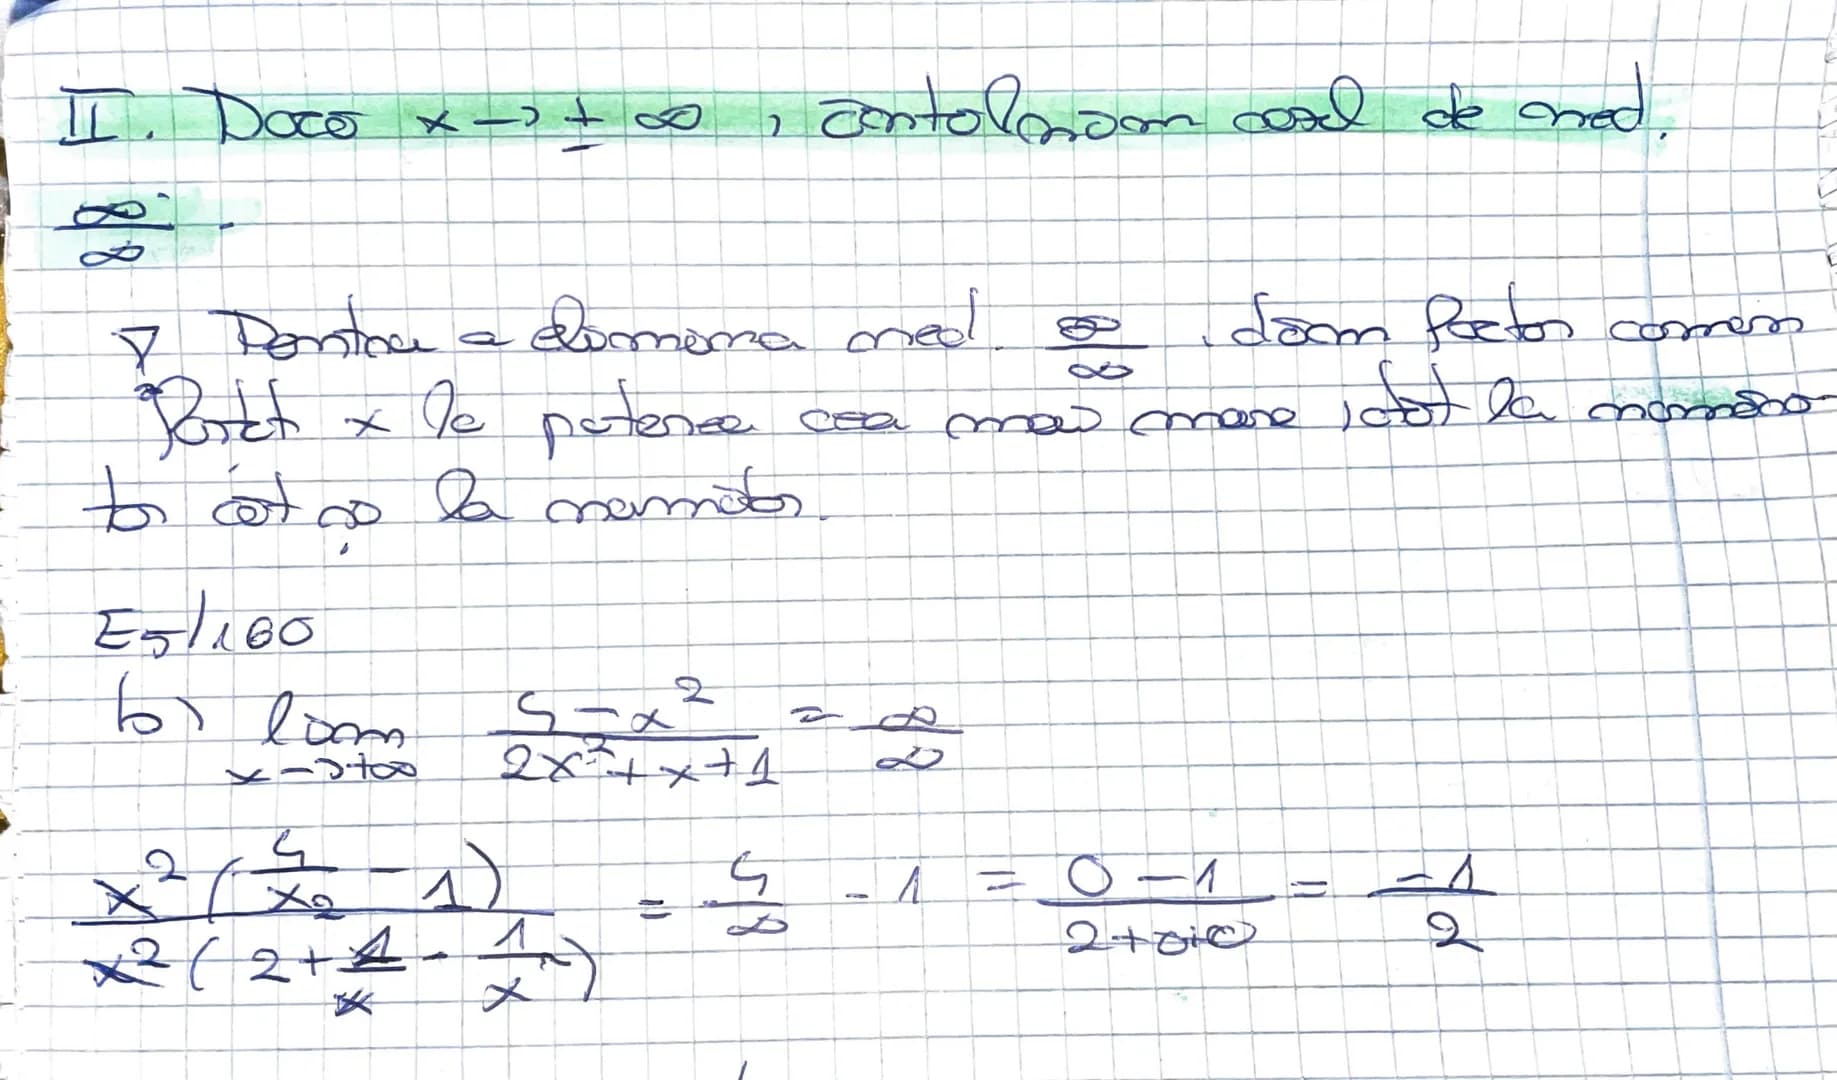 II. Dacă x → ± ∞, întâlnim cazul de ned.
∞/∞.
Pentru a elimina ned. ∞/∞, dăm factor comun
forțat x la puterea cea mai mare, atât la numără-
tor cât și la numitor.
E5/160
b) lim x→+∞ (5 - x²)/(2x² + x + 1) = ∞/∞
x²(5/x2 - 1)/x²(2 + 1/x - 1/x) = 5/∞ - 1 = (0 - 1)/(2+0+0) = -1/2